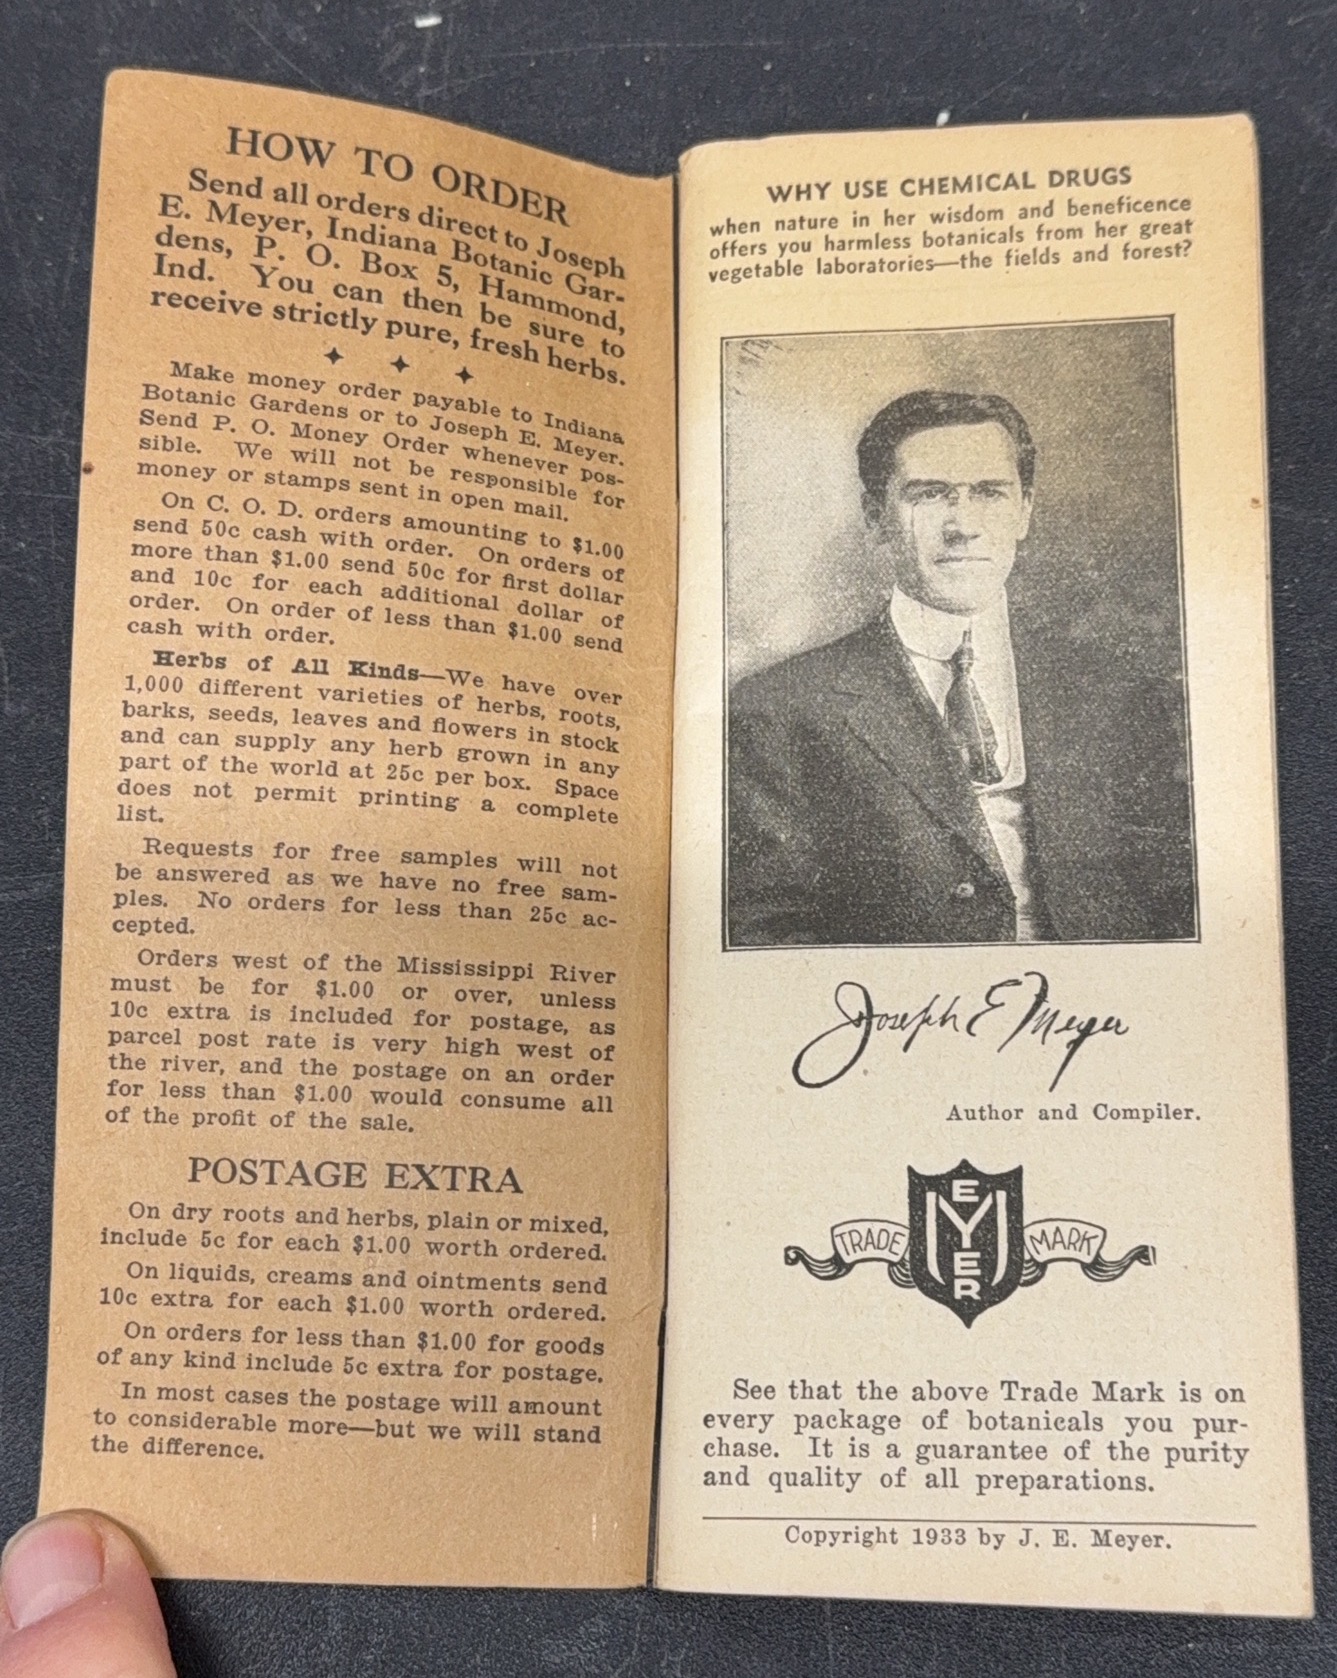 HOW TO ORDER
Send all orders direct to Joseph
E. Meyer, Indiana Botanic Gar-
dens, P. O. Box 5, Hammond,
Ind. You can then be sure to
receive strictly pure, fresh herbs.
Make money order payable to Indiana
Botanic Gardens or to Joseph E. Meyer.
Send P. O. Money Order whenever pos-
sible. We will not be responsible for
money or stamps sent in open mail.
On C. O. D. orders amounting to $1.00
send 50c cash with order. On orders of
more than $1.00 send 50c for first dollar
and 10c for each additional dollar of
order. On order of less than $1.00 send
cash with order.
Herbs of All Kinds—We have over
1,000 different varieties of herbs, roots,
barks, seeds, leaves and flowers in stock
and can supply any herb grown in any
part of the world at 25c per box. Space
does not permit printing a complete
list.
Requests for free samples will not
be answered as we have no free sam-
ples. No orders for less than 25c ac-
cepted.
Orders west of the Mississippi River
must be for $1.00 or over, unless
10c extra is included for postage, as
parcel post rate is very high west of
the river, and the postage on an order
for less than $1.00 would consume all
of the profit of the sale.
POSTAGE EXTRA
On dry roots and herbs, plain or mixed,
include 5c for each $1.00 worth ordered.
On liquids, creams and ointments send
10c extra for each $1.00 worth ordered.
On orders for less than $1.00 for goods
of any kind include 5c extra for postage.
In most cases the postage will amount
to considerable more—but we will stand
the difference.
WHY USE CHEMICAL DRUGS
when nature in her wisdom and beneficence
offers you harmless botanicals from her great
vegetable laboratories—the fields and forest?
Joseph E Meyer
Author and Compiler.
TRADE MEYER MARK
See that the above Trade Mark is on
every package of botanicals you pur-
chase. It is a guarantee of the purity
and quality of all preparations.
Copyright 1933 by J. E. Meyer.